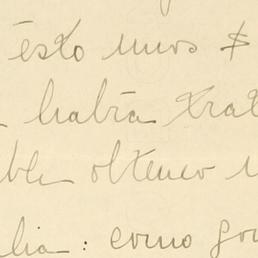 ésto unos $
habra trat
ble obtener
lia: como gor